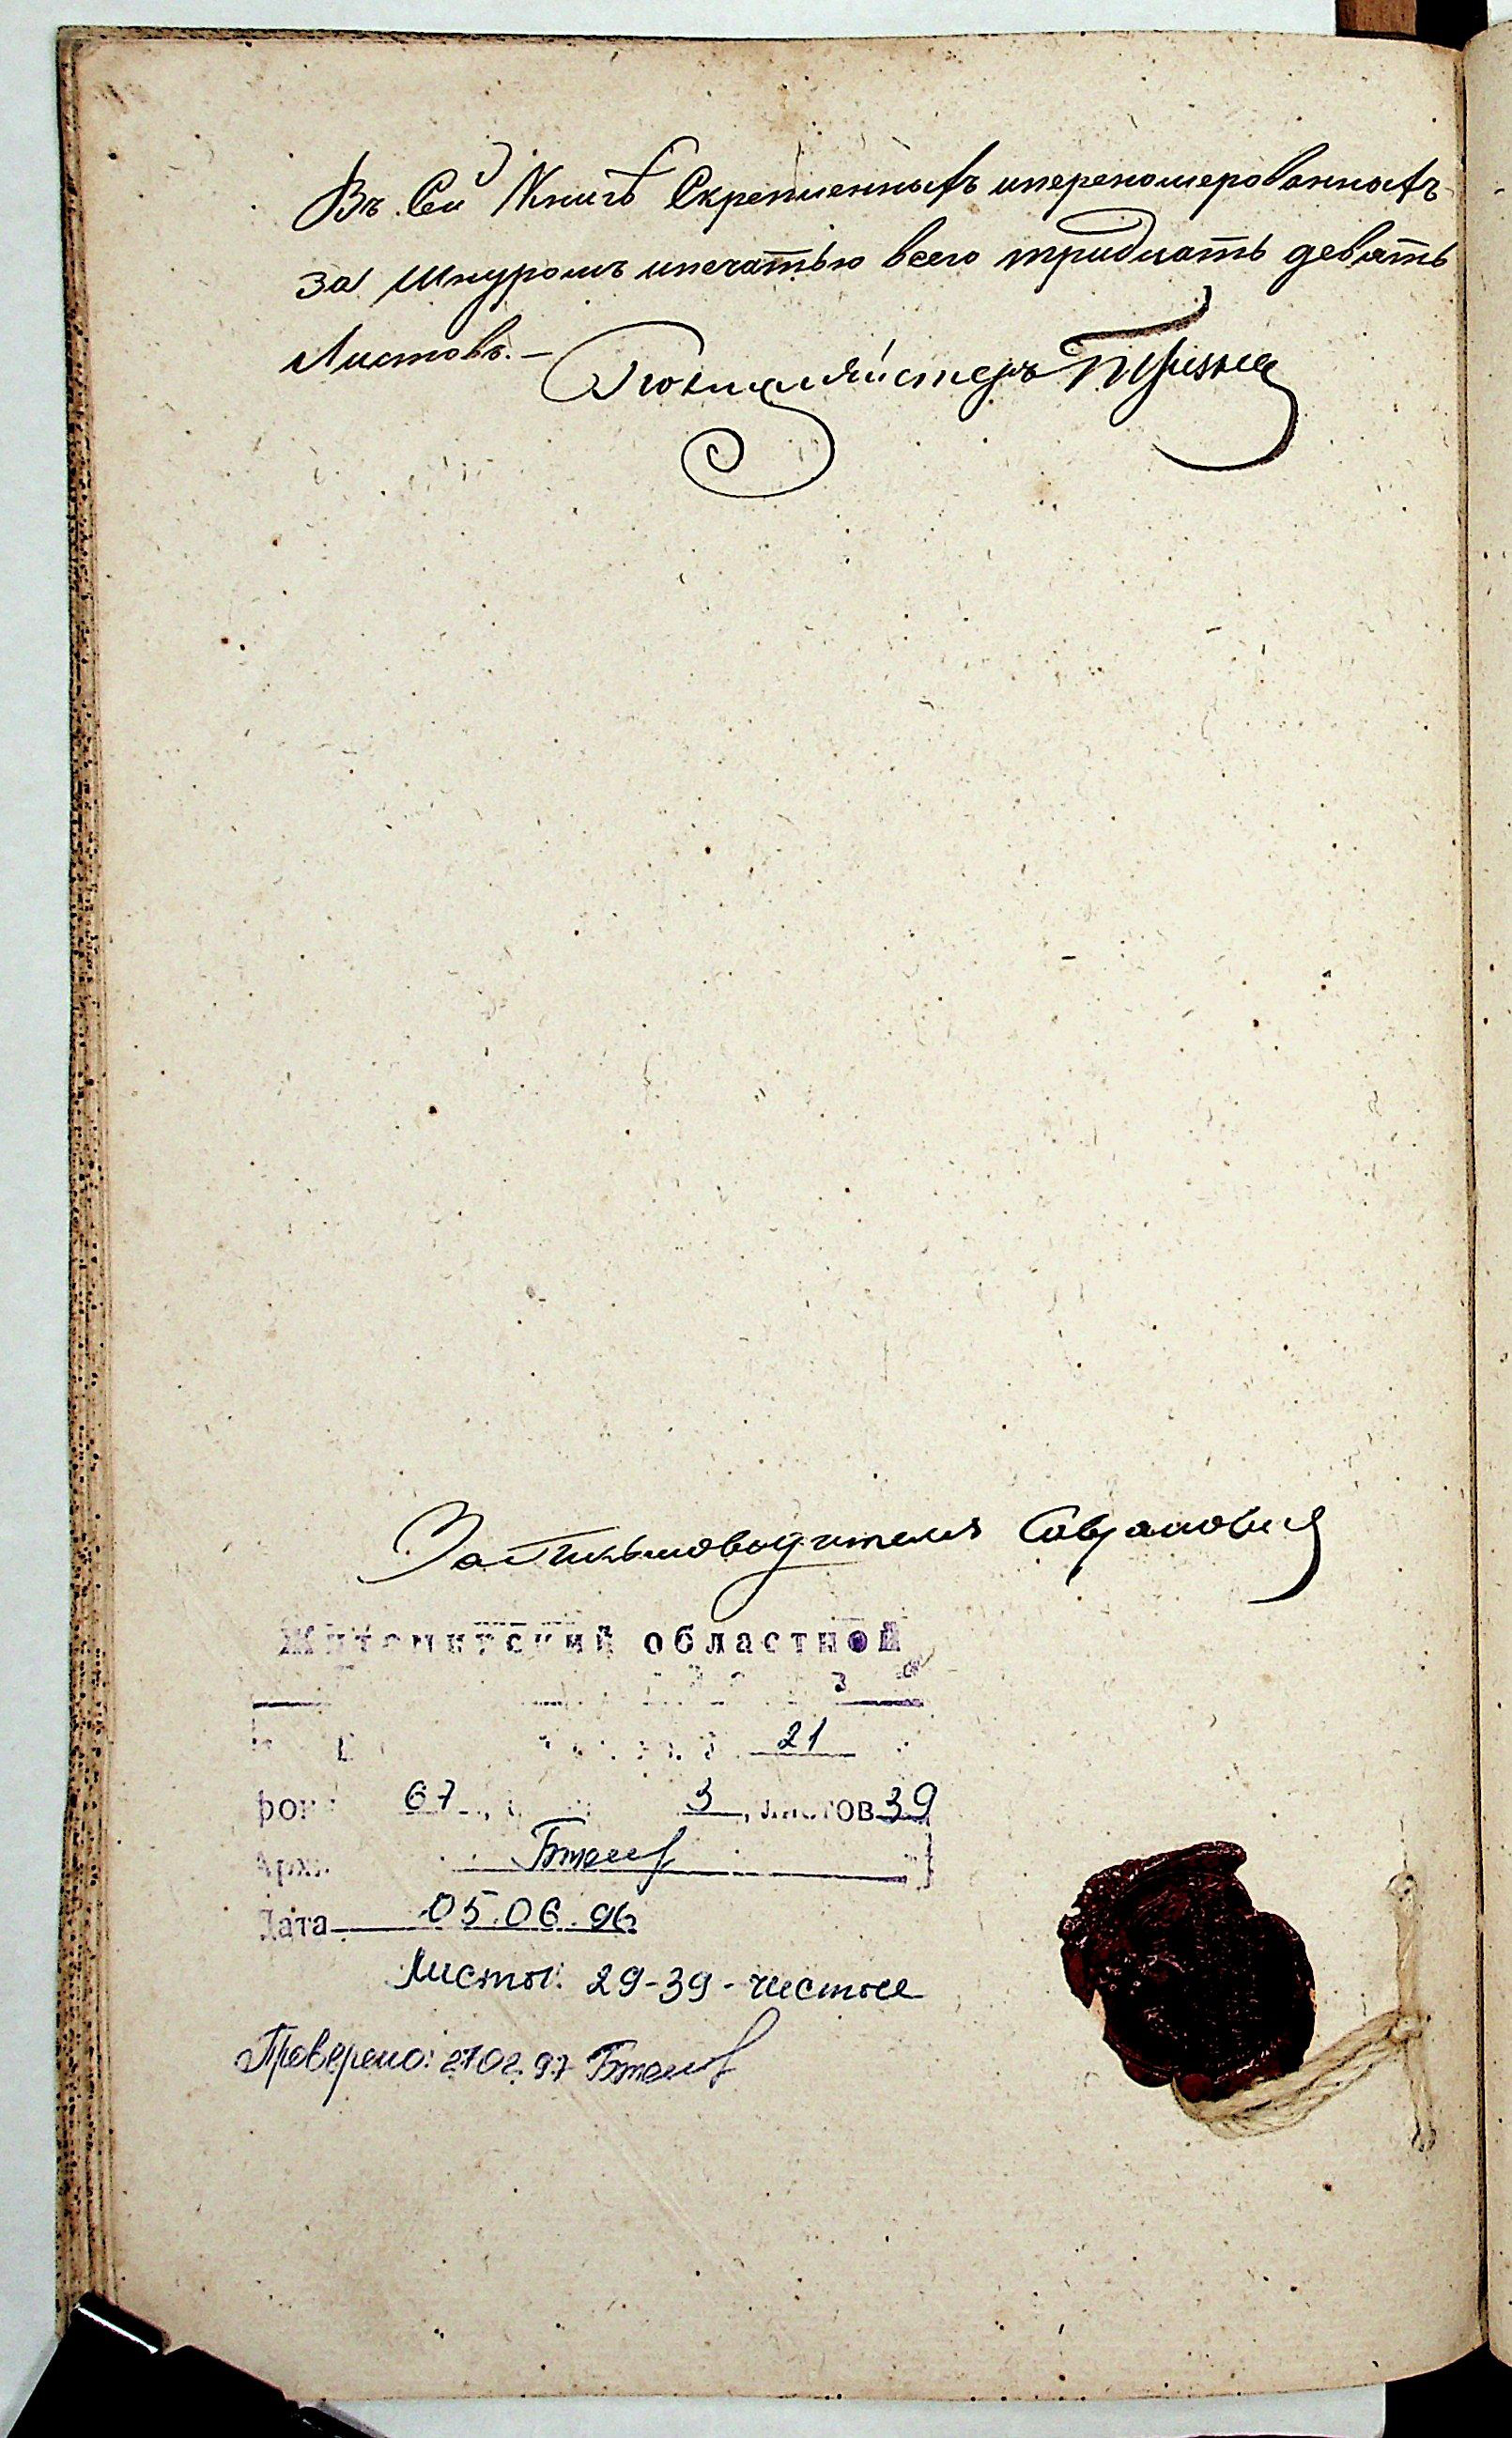 Въ Сей Книгѣ Скрепленныхъ ипереномерованныхъ
за Шнуромъ ипечатью всего тридцать девять
Листовъ.—
За Письмоводителя
Житомирский областной
21
фон 67 3, листов 39
Арх.
Дата 05.06.96
Листы: 29-39 - чистые
Проверено: 27.02.97